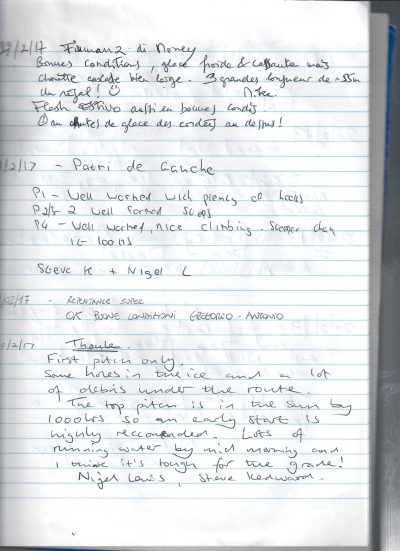 /2/17 Fiumana di Money
Bonnes conditions, glace froide & cassante mais
chouette cascade bien large. 3 grandes longueur de ~55m
Un régal! ☺ Mike
Flash Estivo aussi en bonnes condis
chutes de glace des cordées au dessus!
/2/17 - Patri de Gauche
P1 - Well worked with plenty of hooks
P2/3 - 2 well formed steps
P4 - Well worked, nice climbing. Steeper than
it looks
Steve K + Nigel L
/02/17 - REPENTANCE SUPER
OK BUONE CONDIZIONI GREGORIO - ANTONIO
/2/17 Thoule.
First pitch only.
Some holes in the ice and a lot
of debris under the route.
The top pitch is in the sun by
1000hrs so an early start is
highly reccomended. Lots of
running water by mid morning and
I think it's tough for the grade!
Nigel Lewis, Steve Kedward.